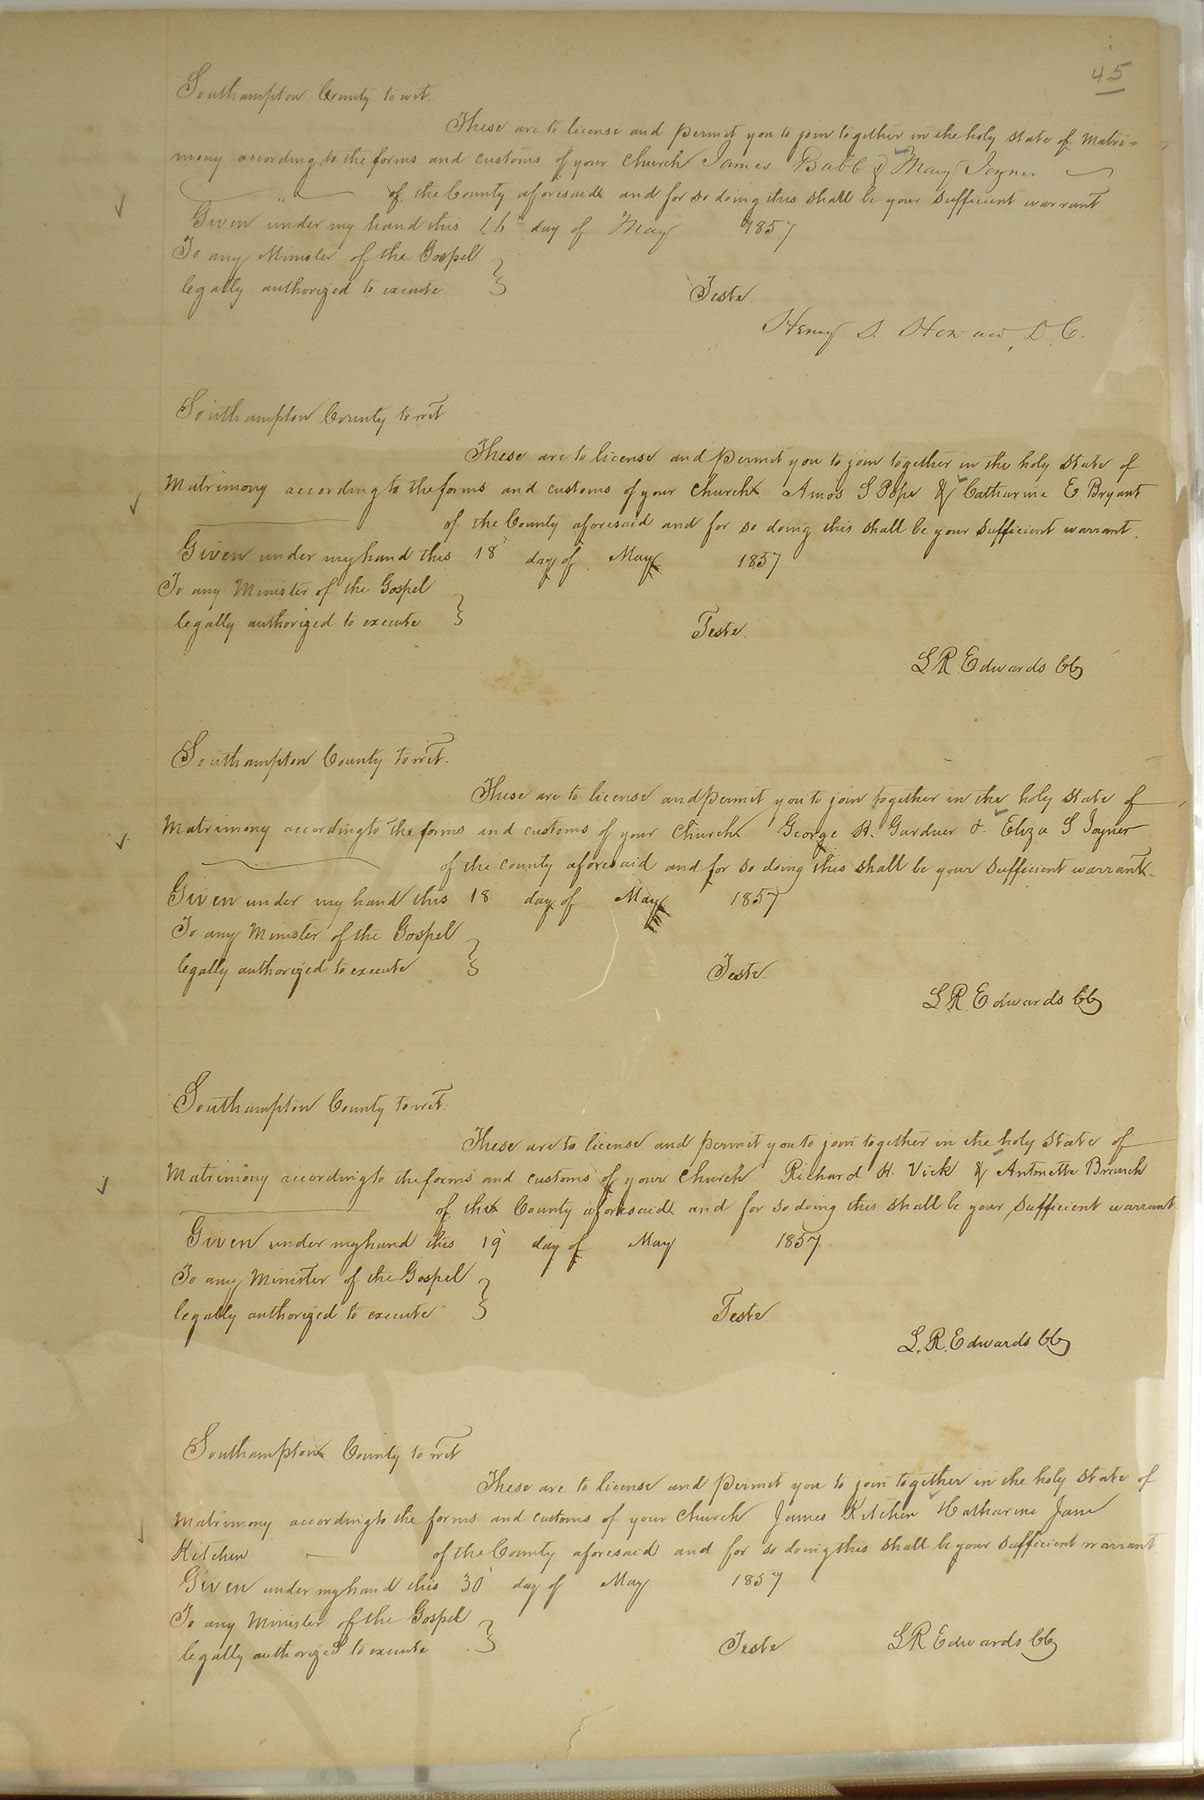 45
Southampton County to wit.
These are to license and permit you to join together in the holy state of Matri-
mony according to the forms and customs of your Church James Babb & Mary Joyner
of the County aforesaid and for so doing this shall be your sufficient warrant
Given under my hand this 16 day of May 1857
To any Minister of the Gospel
legally authorized to execute
Teste
Henry S. D.C.
Southampton County to wit
These are to license and permit you to join together in the holy state of
Matrimony according to the forms and customs of your Church Amos S Pope & Catharine E. Bryant
of the County aforesaid and for so doing this shall be your sufficient warrant.
Given under my hand this 18 day of May 1857
To any Minister of the Gospel
legally authorized to execute
Teste
L R Edwards CC
Southampton County to wit.
These are to license and permit you to join together in the holy state of
Matrimony according to the forms and customs of your Church George H. Gardner & Eliza S Joyner
of the county aforesaid and for so doing this shall be your sufficient warrant
Given under my hand this 18 day of May 1857
To any Minister of the Gospel
legally authorized to execute
Teste
L R. Edwards CC
Southampton County to wit.
These are to license and permit you to join together in the holy State of
Matrimony according to the forms and customs of your Church Richard H. Vick & Antonette Branch
of the County aforesaid and for so doing this shall be your sufficient warrant
Given under my hand this 19 day of May 1857
To any Minister of the Gospel
legally authorized to execute
Teste
L. R. Edwards CC
Southampton County to wit
These are to license and permit you to join together in the holy State of
Matrimony according to the forms and customs of your Church James Kitchen & Catharine Jane
Kitchen of the County aforesaid and for so doing this shall be your sufficient warrant
Given under my hand this 30 day of May 1857
To any Minister of the Gospel
legally authorized to execute
Teste L R Edwards CC